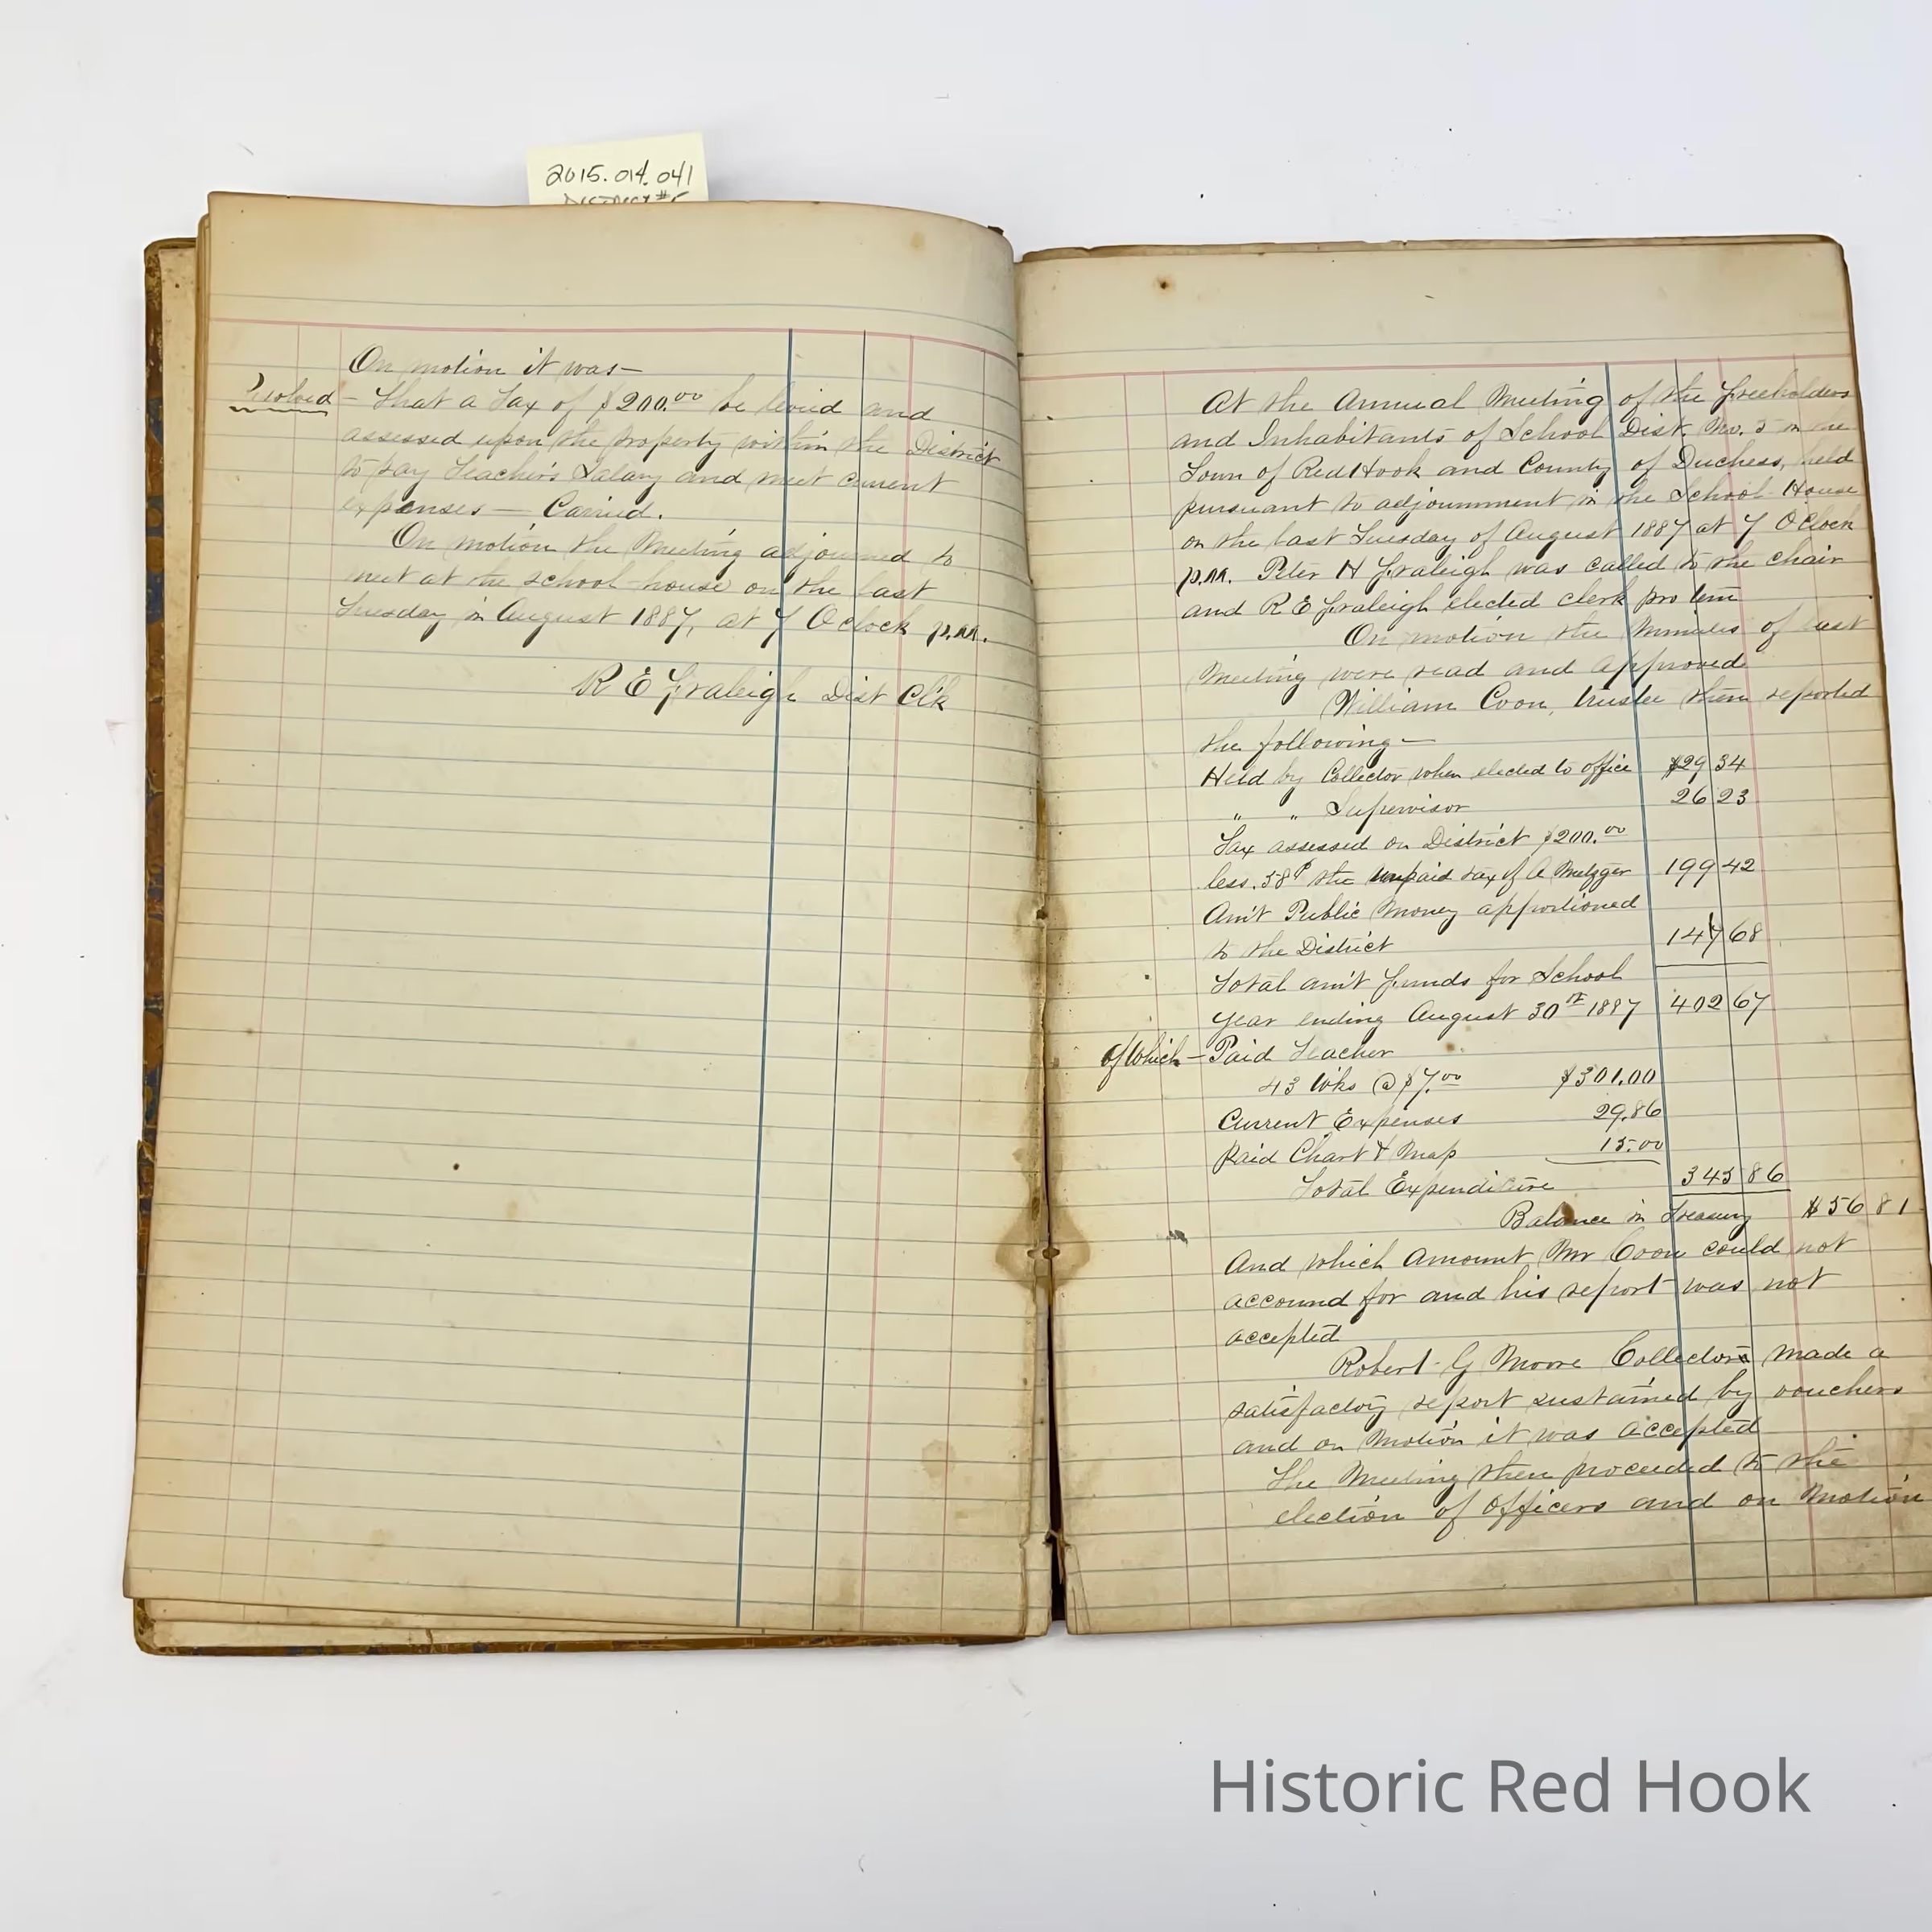 2015.014.041
District #5
On motion it was—
Resolved — That a Tax of $200.00 be levied and
assessed upon the property within the District
to pay Teacher's Salary and meet current
expenses — Carried.
On motion the Meeting adjourned to
meet at the school-house on the last
Tuesday in August 1887, at 7 O clock p.m.
R E Fraleigh Dist Clk
At the Annual Meeting of the Freeholders
and Inhabitants of School Dist. No. 5 in the
Town of Red Hook and County of Duchess, held
pursuant to adjournment in the School House
on the last Tuesday of August 1887 at 7 O Clock
p.m. Peter H Fraleigh was called to the chair
and R E Fraleigh elected clerk pro tem
On motion the Minutes of last
Meeting were read and approved
William Coon, trustee then reported
the following—
Held by Collector when elected to office $29 34
" " Supervisor 26 23
Tax assessed on District $200.00
less .58¢ the unpaid tax of A Metzger 199 42
Am't Public Money apportioned
to the District 147 68
Total am't Funds for School
year ending August 30th 1887 402 67
Of Which — Paid Teacher
43 Wks @ $7.00 $301.00
Current Expenses 29.86
Paid Chart & Map 15.00
Total Expenditure 345 86
Balance in Treasury $56 81
And which amount Mr Coon could not
accound for and his report was not
accepted
Robert G Moore Collector made a
satisfactory report sustained by vouchers
and on motion it was accepted
The Meeting then proceeded to the
election of officers and on motion
Historic Red Hook